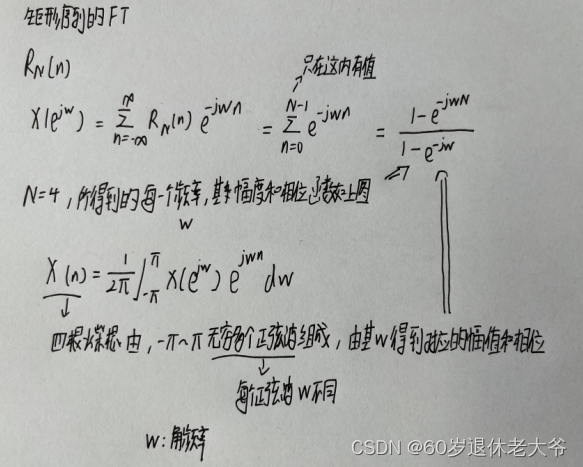 矩形序列的FT
R_N(n)
只在这内有值
X(e^{jw}) = \sum_{n=-∞}^{∞} R_N(n) e^{-jwn} = \sum_{n=0}^{N-1} e^{-jwn} = \frac{1-e^{-jwN}}{1-e^{-jw}}
N=4,所得到的每一个频率,其幅度和相位函数如上图
w
X(n) = \frac{1}{2π} \int_{-π}^{π} X(e^{jw}) e^{jwn} dw
四根 由,-π~π无穷多个正弦波组成,由其w得到对应的幅值和相位
每个正弦的w不同
w:角频率
CSDN @60岁退休老大爷